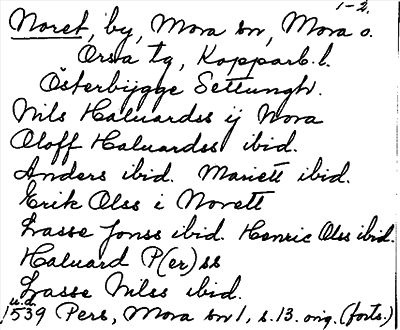 1-2.
Noret, by, Mora sn, Mora o.
Orsa tg, Kopparb. l.
Österbygge Settungh.
Nils Haluardss ij Nora
Oloff Haluardss ibid.
Anders ibid. Mariett ibid.
Erik Olss i Norett
Lasse Jonss ibid. Henric Olss ibid.
Haluard P(er)ss
Lasse Nilss ibid.
u.d.
1539 Pers, Mora sn 1, s. 13. orig. (forts.)